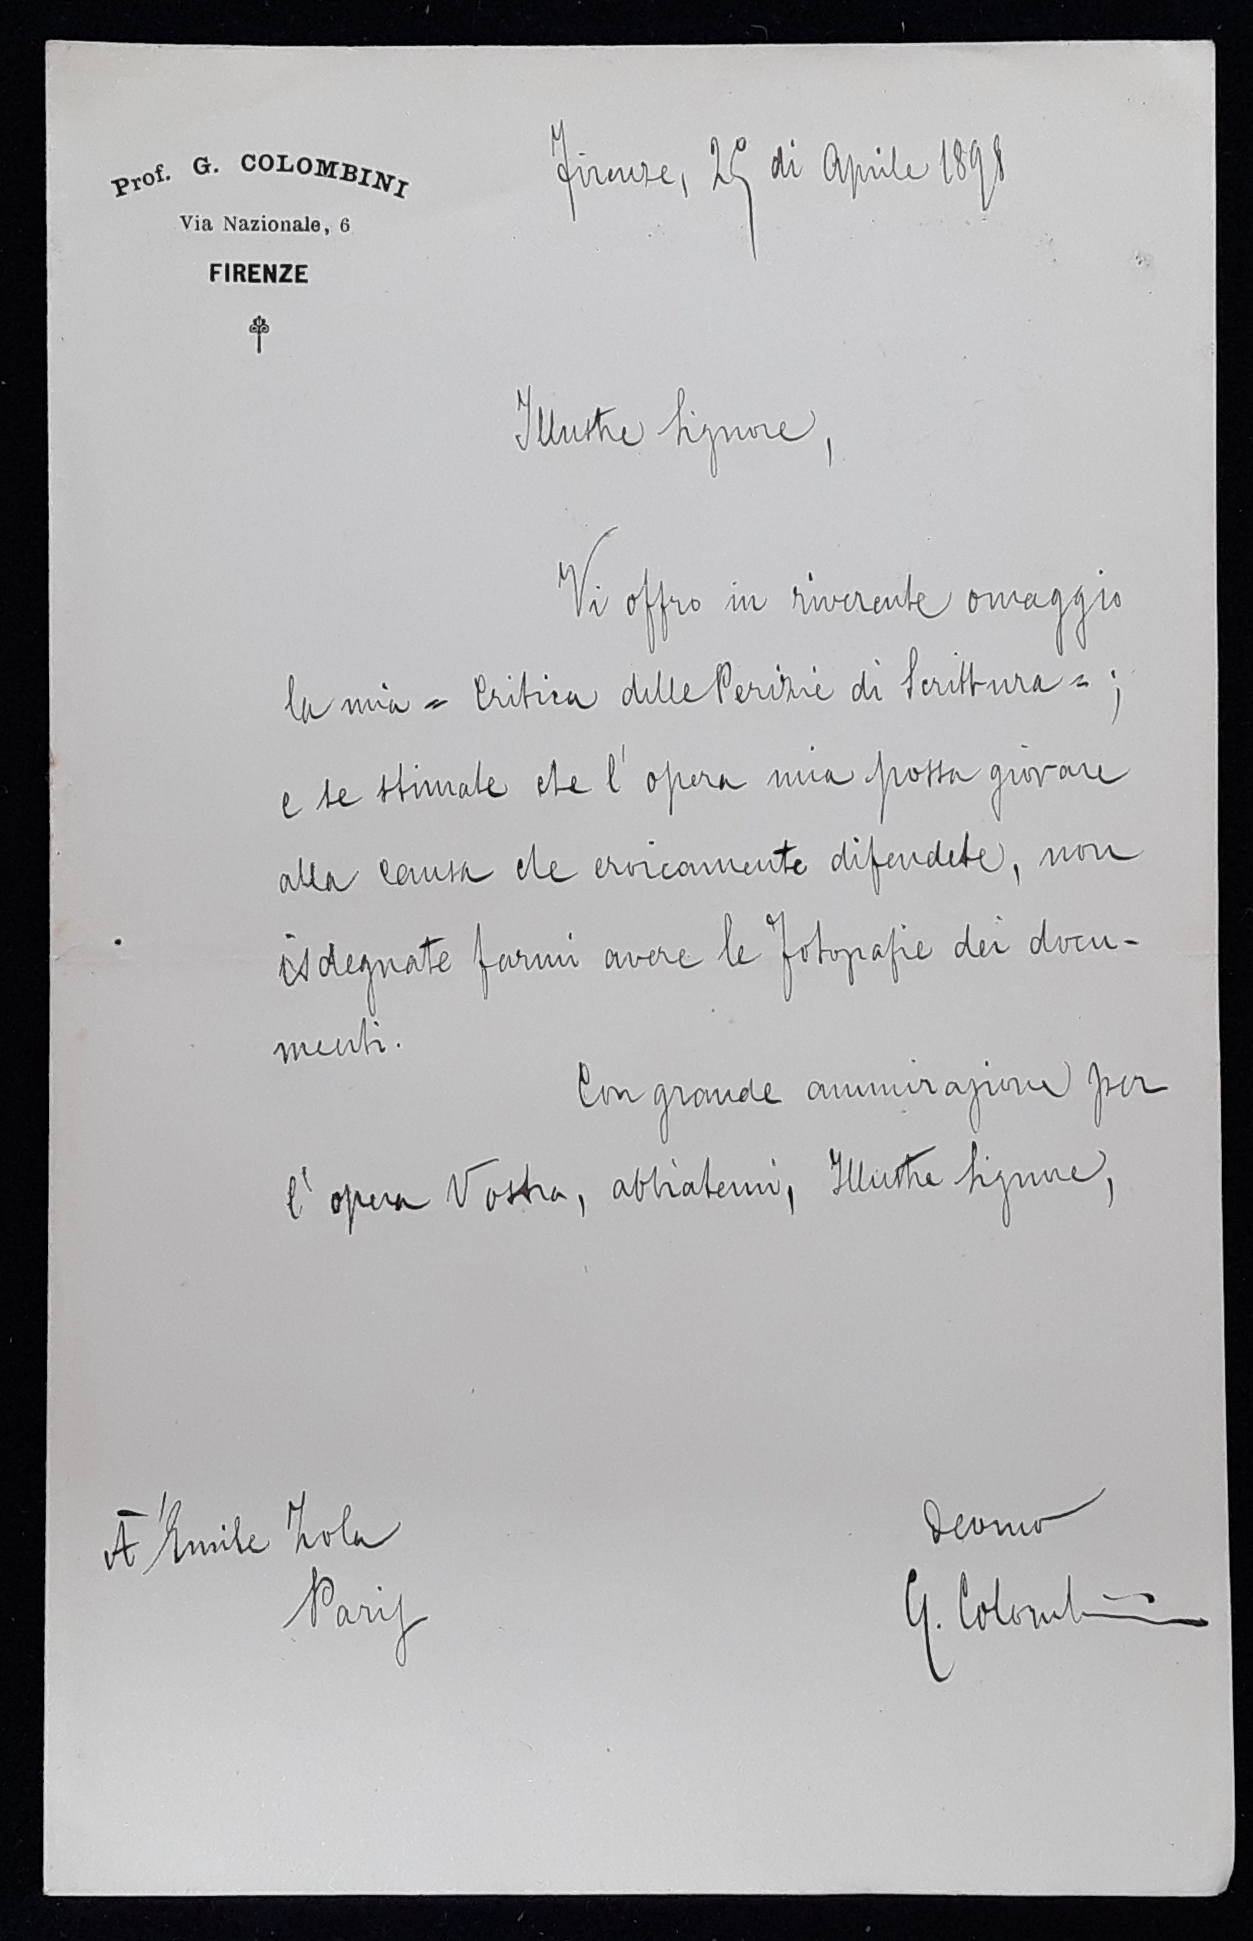 Prof. G. COLOMBINI
Via Nazionale, 6
FIRENZE
Firenze, 29 di Aprile 1898
Illustre Signore,
Vi offro in riverente omaggio
la mia = Critica delle Perizie di Scrittura = ;
e se stimate che l'opera mia possa giovare
alla causa che eroicamente difendete, non
isdegnate farmi avere le fotografie dei docu-
menti.
Con grande ammirazione per
l'opera Vostra, abbiatemi, Illustre Signore,
A Émile Zola
Paris
Devmo
G. Colombini